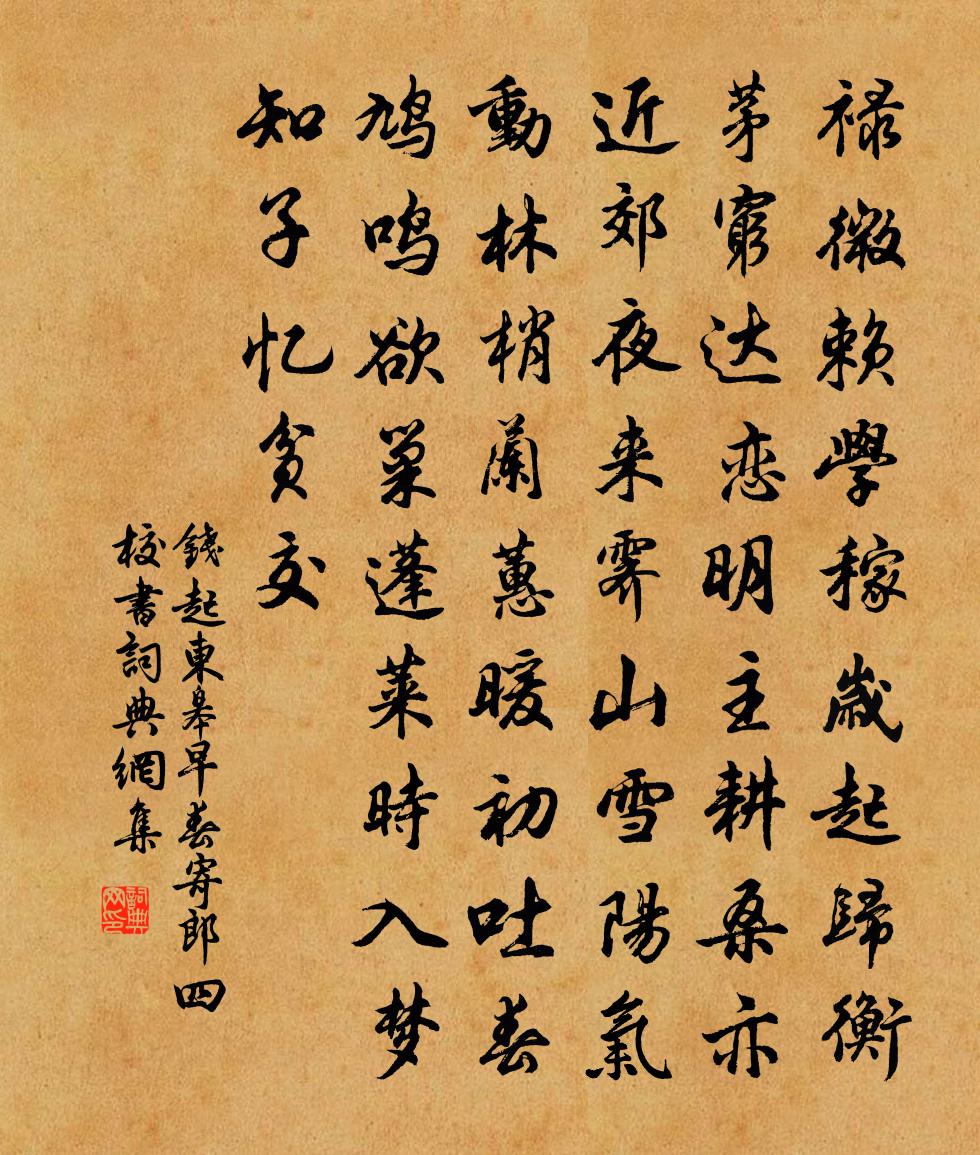 禄微赖學稼歲起歸衡
茅窮达恋明主耕桑亦
近郊夜来霽山雪陽氣
動林梢蘭蕙暖初吐春
鸠鸣欲巢蓬萊時入梦
知子忆贫交
錢起東皋早春寄郎四
校書詞典網集
詞典网印